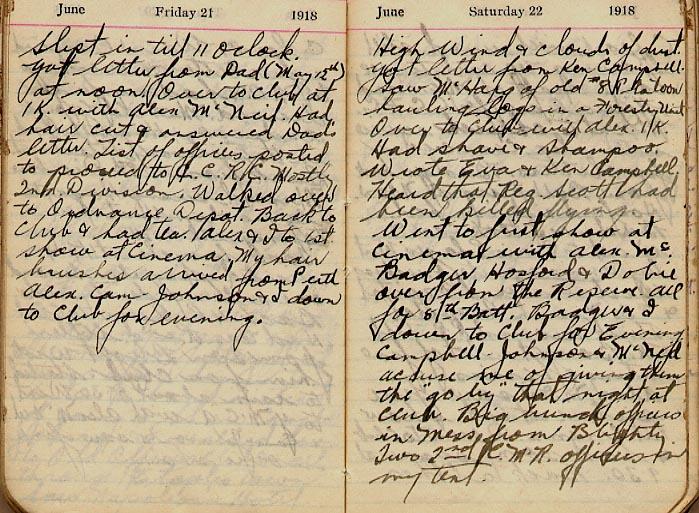 June Friday 21 1918
Slept in till 11 o'clock.
Got letter from Dad (May 12th)
at noon. Over to Club at
1 K. with Alex McNeil. Had
hair cut & answered Dad's
letter. List of officers posted
to proceed to C.C.R.C. Mostly
2nd Division. Walked over
to Ordnance Depot. Back to
Club & had tea. Alex & I to 1st
show at Cinema. My hair
brushes arrived from Perth
Alex. Cam Johnson & I down
to Club for evening.
June Saturday 22 1918
High Wind & clouds of dust.
Got letter from Ken Campbell.
Saw McHarg of old #8 Platoon
hauling logs in a Forestry Unit
Over to Club with Alex. 1 K.
Had shave & shampoo
Wrote Eva & Ken Campbell
Heard that Reg Scott had
been killed flying.
Went to first show at
Cinema with Alex. Mc.
Badger Hosford & Dobie
over from the Reserve all
for 8th Batt. Badger & I
down to Club for Evening
Campbell. Johnson & McNeil
accuse me of giving them
the "go by" that night at
Club. Big bunch officers
in Mess from Blighty
Two 2nd C.M.R. officers in
my tent.